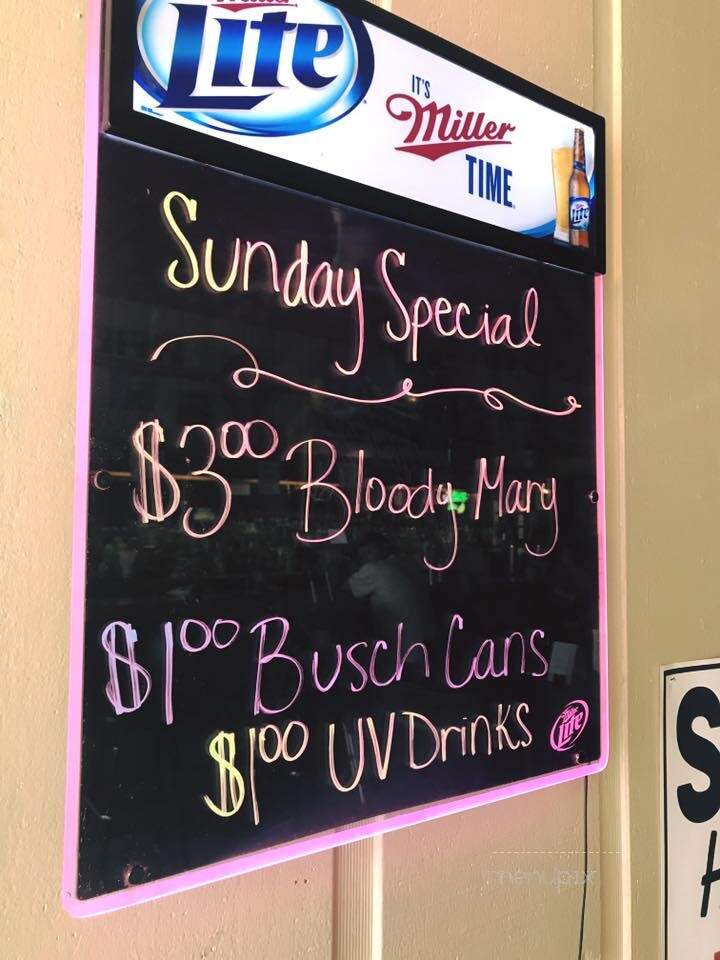 Miller
Lite
IT'S
Miller
TIME
Lite
Sunday Special
$3.00 Bloody Mary
$1.00 Busch Cans
$1.00 UV Drinks
Lite
menupix